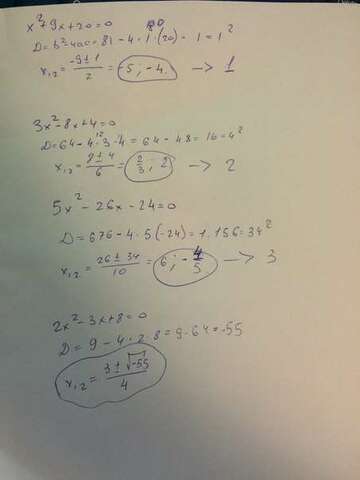 x²+9x+20=0
80
D=b²-4ac=81-4·1·(20)=1=1²
x₁,₂=(-9±1)/2=-5;-4. → 1
3x²-8x+4=0
12
D=64-4·3·4=64-48=16=4²
x₁,₂=(8±4)/6=2/3;2 → 2
5x²-26x-24=0
D=676-4·5(-24)=1.156=34²
x₁,₂=(26±34)/10=6;-4/5 → 3
2x²-3x+8=0
D=9-4·2·8=9-64=-55
x₁,₂=(3±√-55)/4